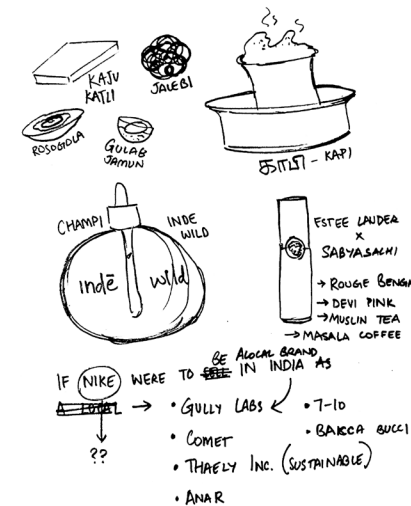 KAJU
KATLI
JALEBI
ROSOGOLA
GULAB
JAMUN
காபி - KAPI
CHAMPI
INDE
WILD
indē wild
ESTEE LAUDER
X
SABYASACHI
→ ROUGE BENGA
→ DEVI PINK
→ MUSLIN TEA
→ MASALA COFFEE
IF NIKE WERE TO BE A LOCAL BRAND IN INDIA AS
A LOCAL → • GULLY LABS
??
• COMET
• THAELY INC. (SUSTAINABLE)
• ANAR
• 7-10
• BACCA BUCCI